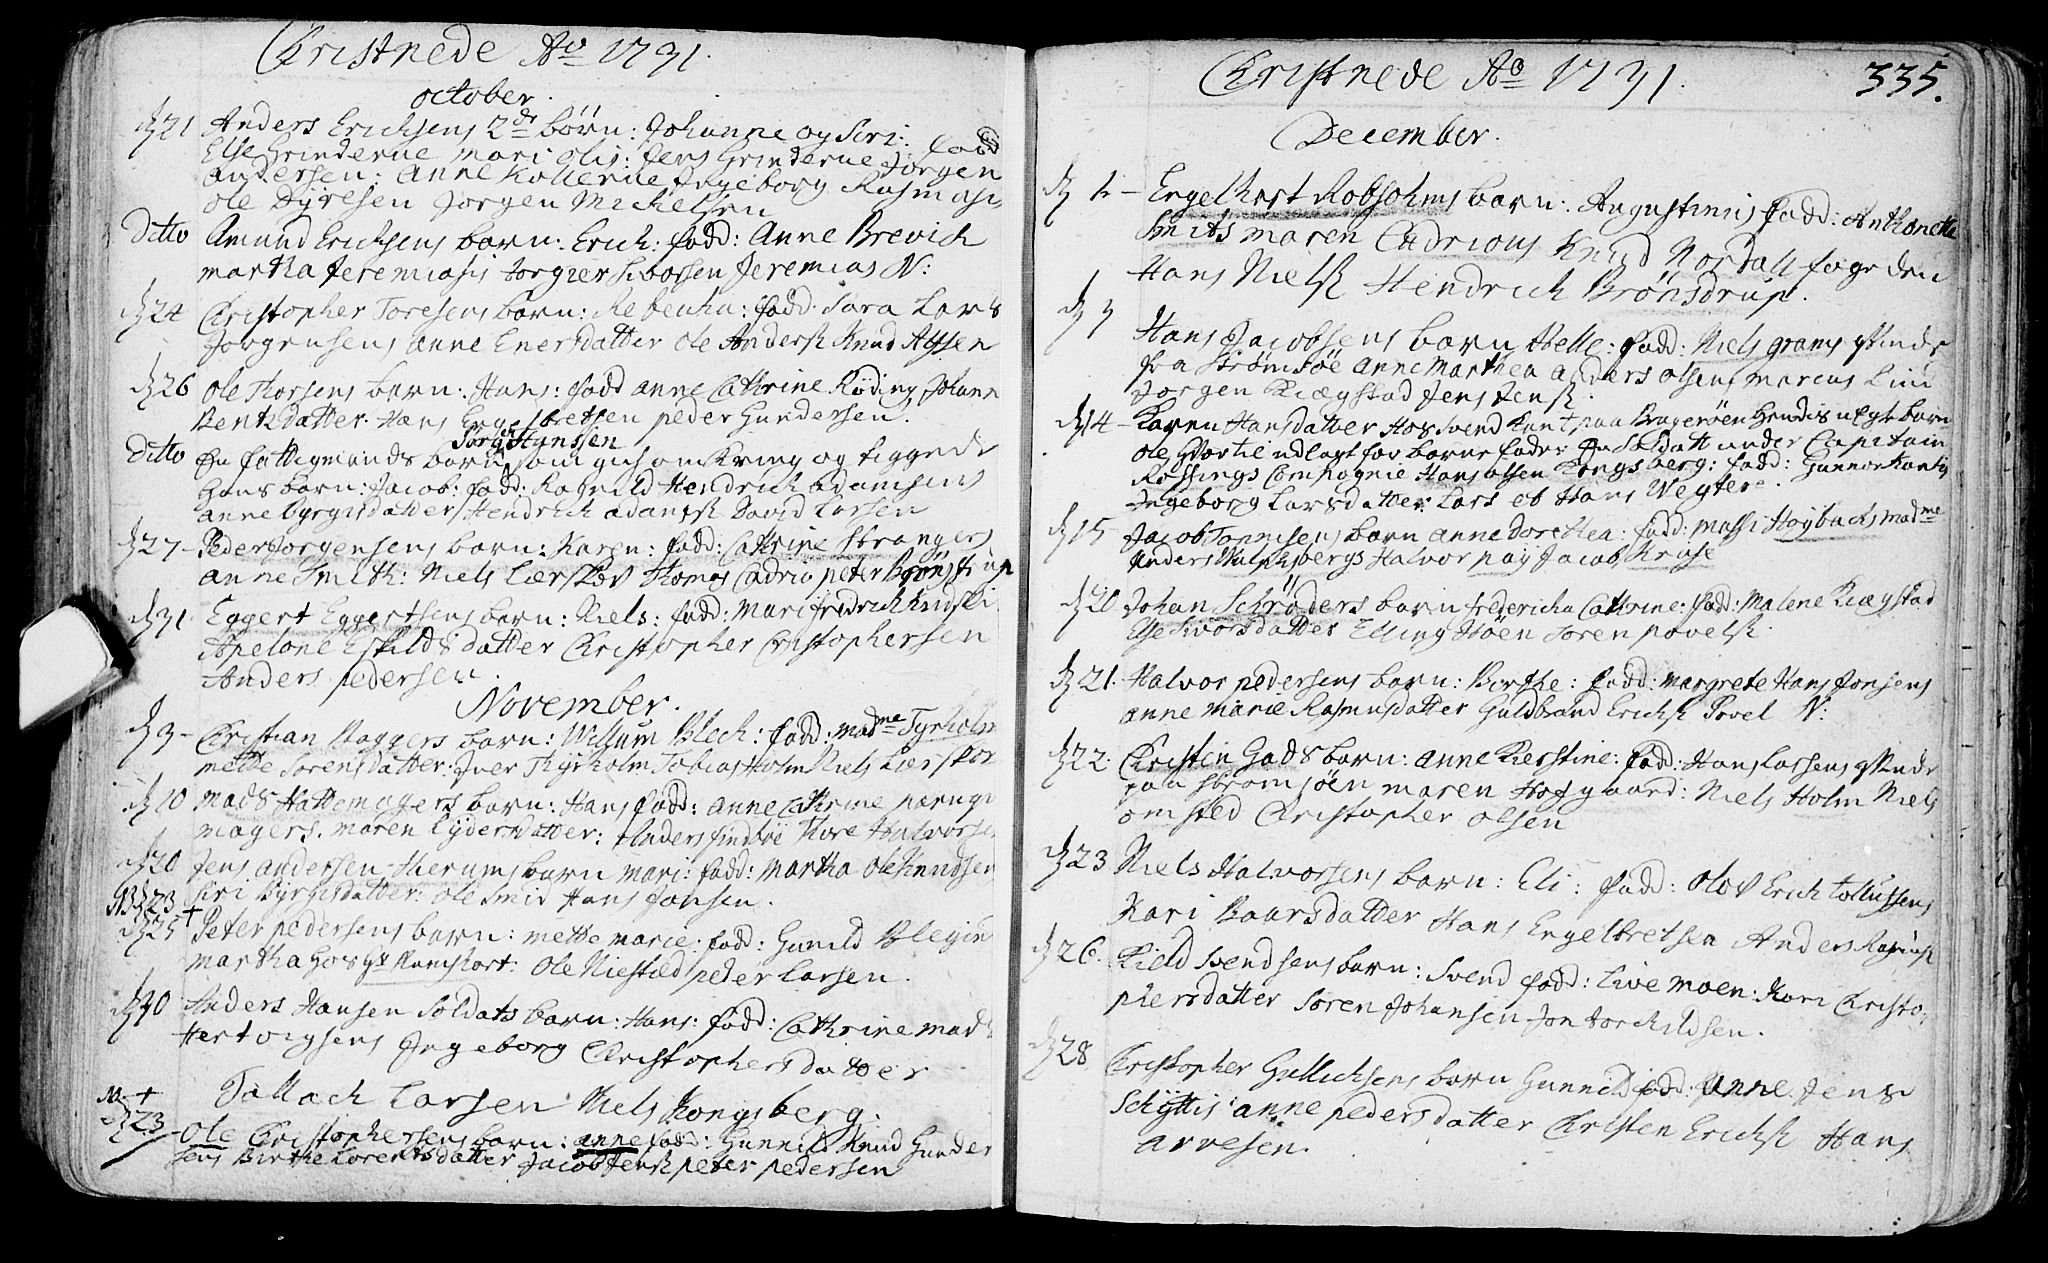 Christnede Ao 1731.
October.
d 21 Anders Erichsens 2de børn: Johanne og Siri: fadd
Else Grinderne Mari Olis: Jens Grinderne Jorgen
Andersen: Anne Kollerne Ingeborg Rasmusis
Ole Dyresen Jorgen Mickelsen
Ditto Amund Erichsens barn: Erich: fadd: Anne Brevich
Martha Jeremiasis Torgier Jeremias N:
d 24 Christopher Toresens barn: fadd: Sara Lars
Jorgensens Anne Enersdatter Ole Andersk Knud
d 26 Ole Thorsens barn: Hans: fadd Anne Cathrine Røding Johanne
Bentzdatter. Hans Engelbretsen Peder Gundersen.
Jorgen Hanssen
Ditto En fattigmands barn som gich omkring og tiggede
hans barn: Jacob: fadd: Ragnild Hendrich Adamsens
Anne Byrgisdatter Hendrich Adamsk David Larsen
d 27 - Peder Jorgensens barn: Karen: fadd: Cathrine Strangers
Anne Smith: Niels Lærskov Thomas Cadrio Peter Brønstrup
d 31 Eggert Eggertsens barn: Niels: fadd: Mari Fredrich
Apelone Eskildsdatter Christopher Christophersen
Anders Pedersen.
November.
d 3 - Christian Baggers barn: Willum Blech: fadd: Madme Tyrholm
Mette Sorensdatter: Iver Thyrholm Tobias Holm Niels Lierskov
d 10 Mads Hattemagers barn: Hans fadd: Anne Cathrine
magers. Maren Eydersdatter: Anders Thore Halvorsen
d 20 Jens Andersen barn Mari: fadd: Martha Ole Knudsen
Siri Byrgisdatter: Ole Smid Hans Jonsen.
NB d 23 +
d 25 Peter Pedersens barn: Mette Marie: fadd: Gunild
Martha hos Ole Niestæd Peder Larsen.
d 30 Anders Hansen Soldats barn: Hans: fadd: Cathrine Mads
Hertvigsens Ingeborg Christophersdatter
Tallach Larsen Niels Kongsberg.
NB +
d 23 - Ole Christophersens barn: Anne fadd: Gunnild Knud Gunder
sens Birthe Lorentsdatter Jacob Jensk Peter Pedersen
Christnede Ao 1731. 335.
December.
d 2 - Engelhart Robsohms barn: Augustinus fadd: Anthonette
Smits Maren Cadrious Knud Nordall fogeden
Hans Nielsk Hendrich Brønsdrup.
d 3 Hans Jacobsens barn Helle: fadd: Niels Grams qvinde
fra Strømsøe Anne Marthea Anders Olsens Marcus Lind
Jorgen Kiægstad Jens Jensk.
d 14 - Karen Hansdatter hos Svend Kant paa Bragerøen hendis uegte barn
Ole hvortil udlagt for barne fader En Soldatt under Capitain
Rossings Compagnie Hans Olsen Kongsberg: fadd: Gunnor Kantis
Ingeborg Larsdatter Lars og Hans Vegtere.
d 15 - Jacob Tonnisens barn Anne Dorethea: fadd: Massi Høybachs Madme
Anders Halvor Pay Jacob Kruse
d 20 Johan Schrøders barn Fredericha Cathrine: fadd: Malene Kiægstad
Else Sivorsdatter Elling Høen Soren Povelsk.
d 21. Halvor Pedersens barn: Birthe: fadd: Margrete Hans Jonsens
Anne Marie Rasmusdatter Guldbrand Ericksk Povel N:
d 22. Christen Gads barn: Anne Kierstine: fadd: Hans Lassens qvinde
paa Strømsøen Maren Hofgaard: Niels Holm Niels
Omsted Christopher Olsen
d 23 Niels Halvorsens barn: Eli: fadd: Olov Erich Tollufsens
Kari Baarsdatter Hans Engelbretsen Anders Rasmusk
d 26. Kield Svendsens barn: Svend fadd: Live Moen: Kari Christo-
phersdatter Soren Johansen Jon Torkildsen.
d 28 Christopher Gullichsens barn Gunnild fadd: Anne Jens
Schyttis Anne Pedersdatter Christen Ericksk Hans
Arvesen.